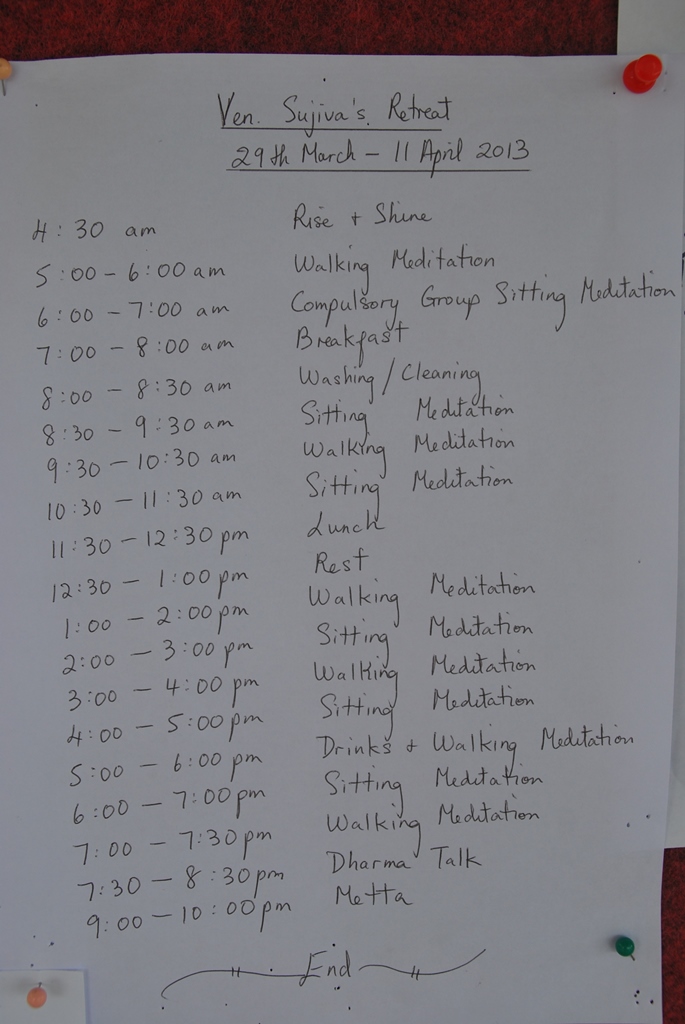 Ven. Sujiva's. Retreat
29th March - 11 April 2013
4:30 am Rise + Shine
5:00 - 6:00 am Walking Meditation
6:00 - 7:00 am Compulsory Group Sitting Meditation
7:00 - 8:00 am Breakfast
8:00 - 8:30 am Washing / Cleaning
8:30 - 9:30 am Sitting Meditation
9:30 - 10:30 am Walking Meditation
10:30 - 11:30 am Sitting Meditation
11:30 - 12:30 pm Lunch
12:30 - 1:00 pm Rest
1:00 - 2:00 pm Walking Meditation
2:00 - 3:00 pm Sitting Meditation
3:00 - 4:00 pm Walking Meditation
4:00 - 5:00 pm Sitting Meditation
5:00 - 6:00 pm Drinks + Walking Meditation
6:00 - 7:00 pm Sitting Meditation
7:00 - 7:30 pm Walking Meditation
7:30 - 8:30 pm Dharma Talk
9:00 - 10:00 pm Metta
End